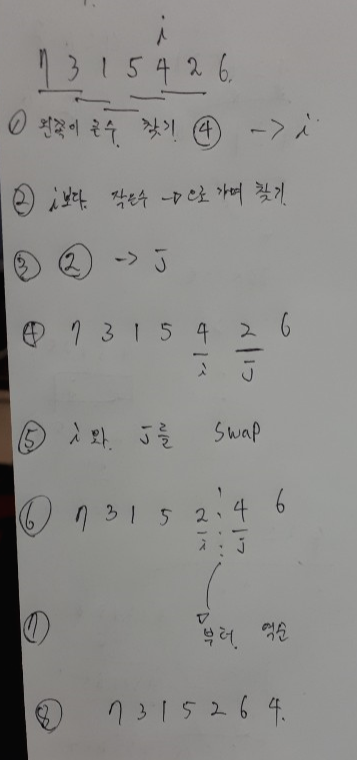 i
7 3 1 5 4 2 6.
① 왼쪽이 큰수 찾기. ④ -> i
② i보다. 작은수 -> 으로 가며 찾기.
③ ② -> j
④ 7 3 1 5 4 2 6
i j
⑤ i와 j를 swap
⑥ 7 3 1 5 2 4 6
i j
⑦ 부터. 역순
⑧ 7 3 1 5 2 6 4.